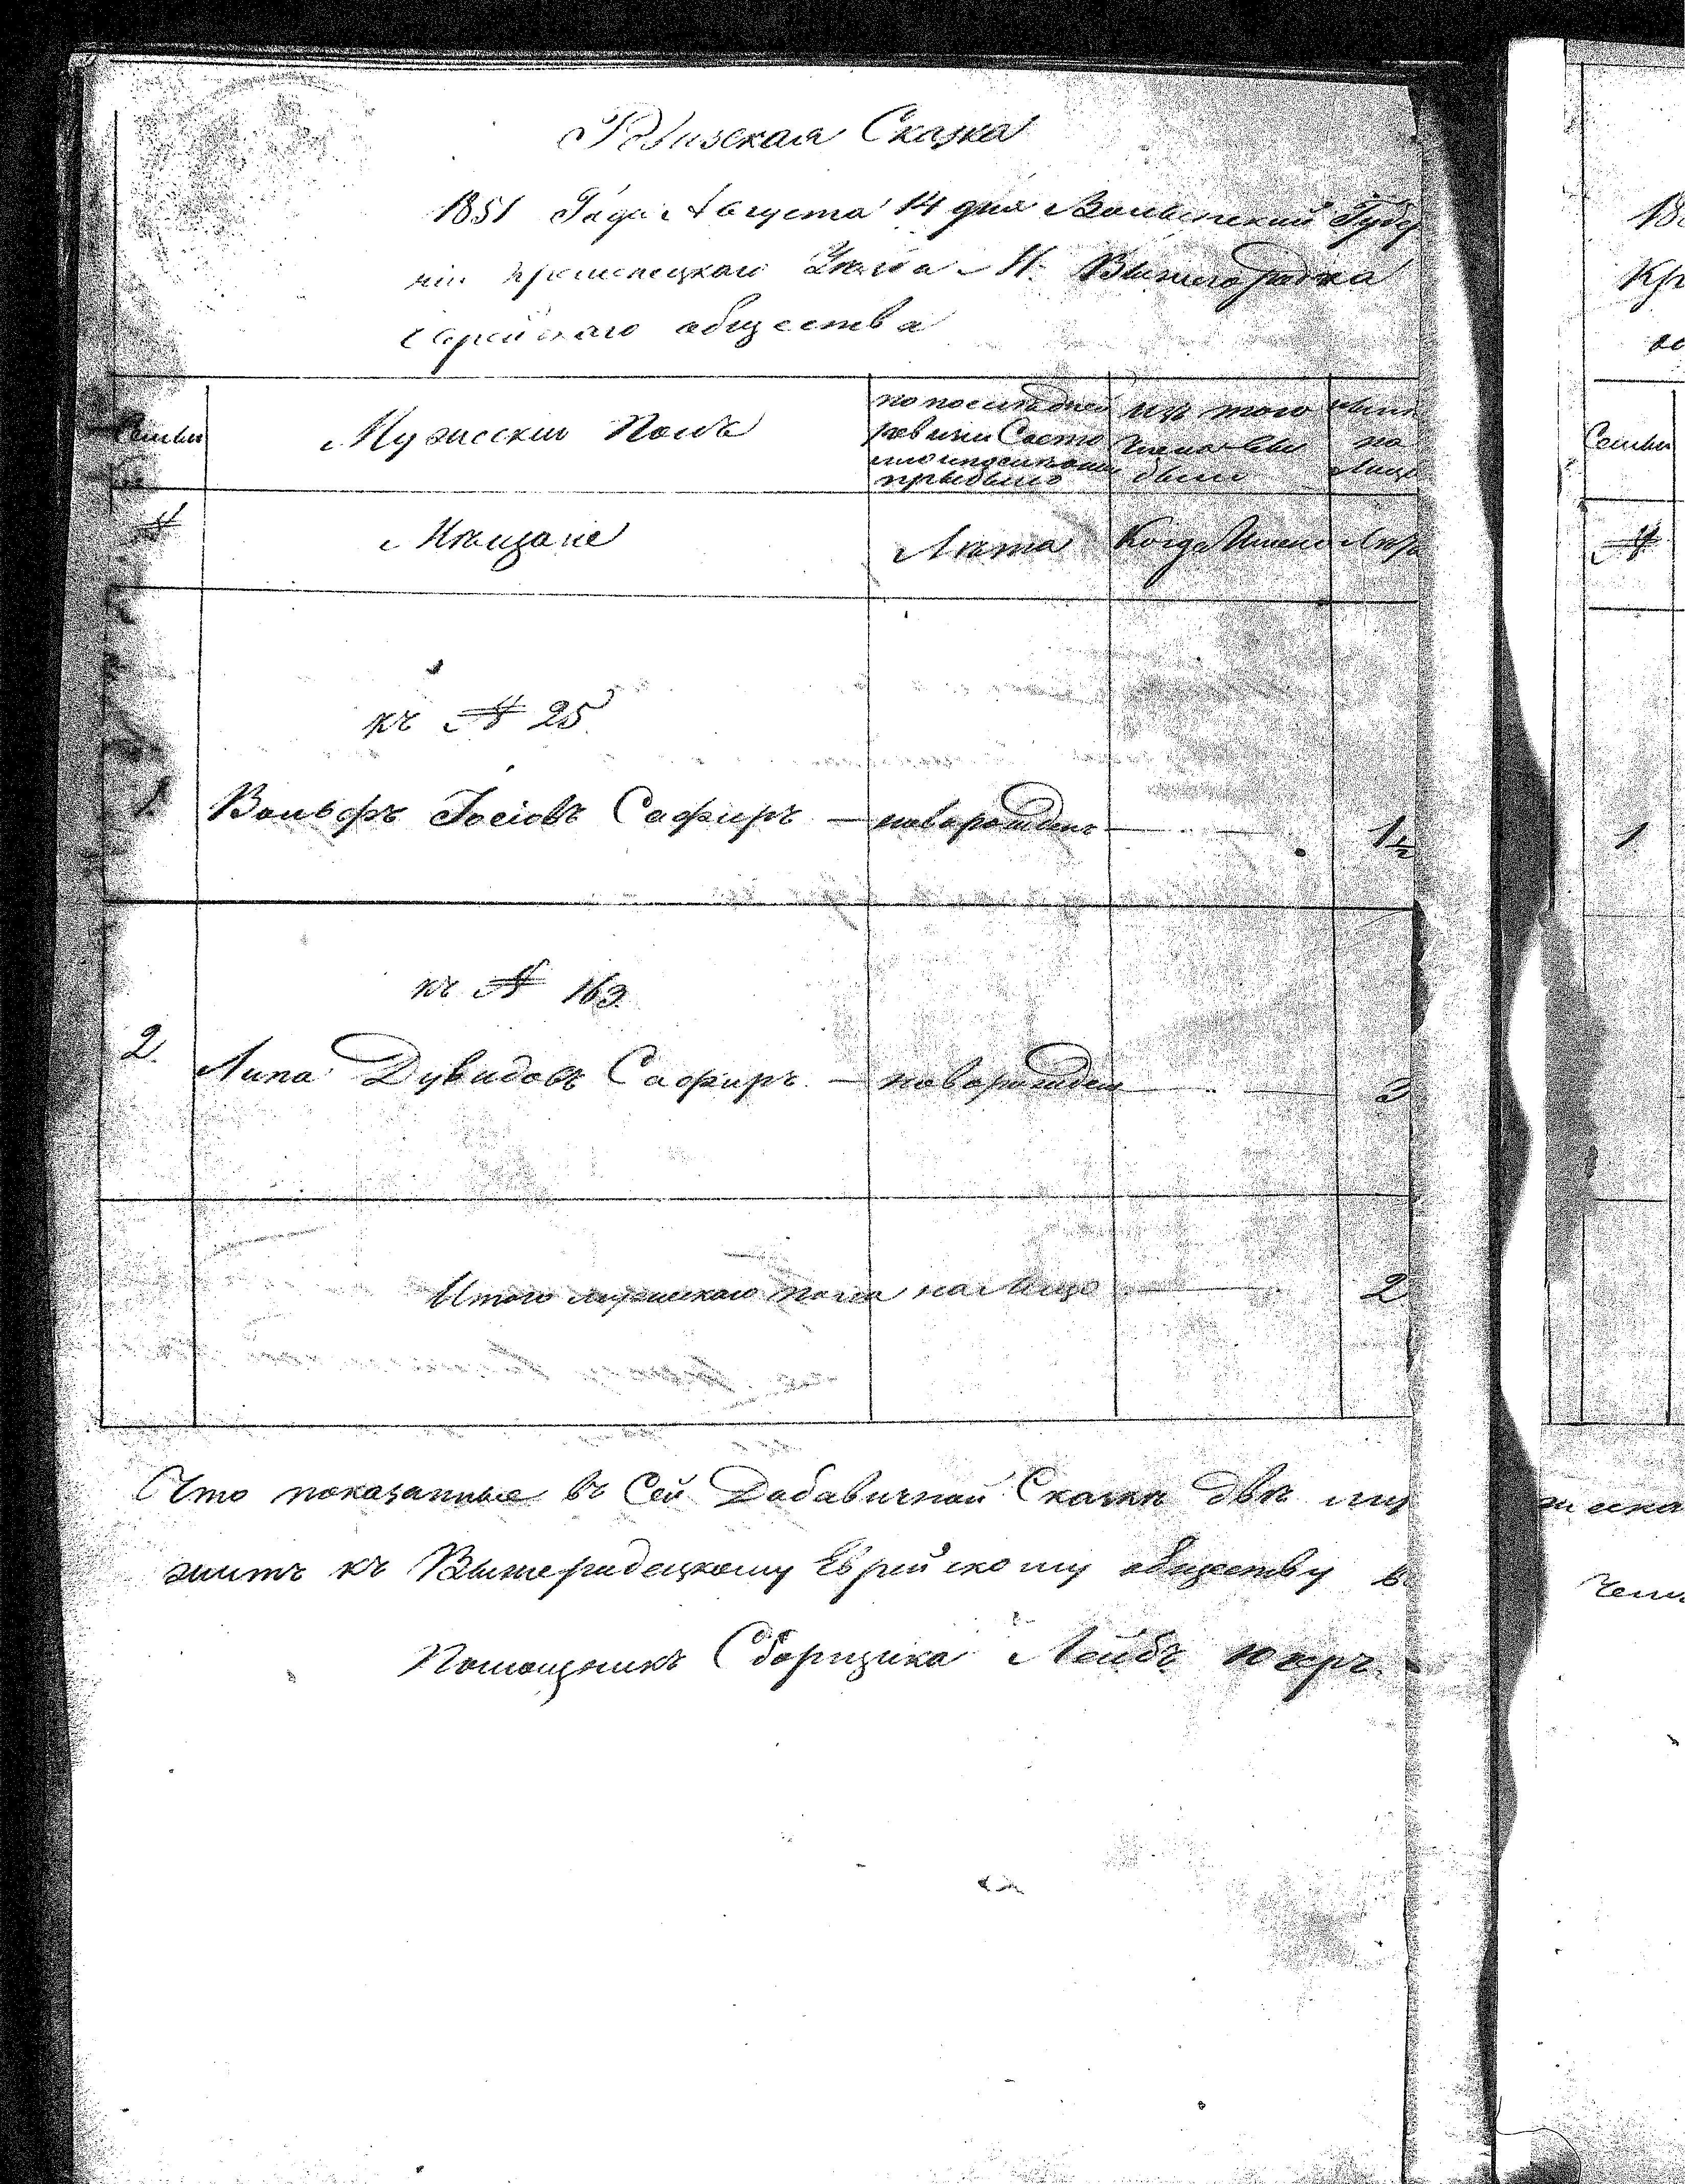 Ревизская Сказка
1851 Года Августа 14 дня Волынской Губер
ніи Кременецкаго Уезда М. Вышегородка
Еврейскаго общества
Семьи
Мужескій Полъ
по последней
ревизіи Состо
яло и после оной
прибыло
изъ того
числа вы
было
ныне
на
лицо
№
Мѣщане
Лѣта
Когда Именно
Лѣта
къ № 25
1.
Вольфъ Іосіовъ Сафиръ — новорожденъ
1½
къ № 163
2.
Липа Дувидовъ Сафиръ — новорожден
3
Итого мужескаго пола на Лицо
2
Что показанные въ Сей Добавичной Сказкѣ двѣ му
жить къ Вышегродецкому Еврейскому обществу в
Помощникъ Сборщика Лейбъ
18
Кр
Семьи
№
1